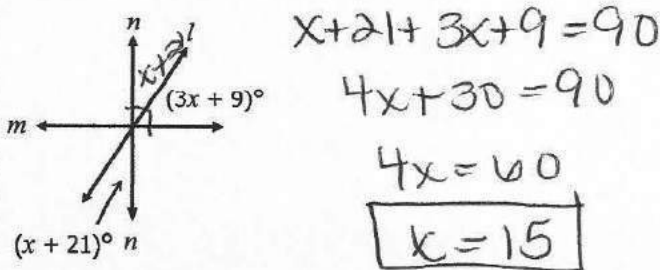 n
l
x+21
(3x + 9)°
m
(x + 21)°
n
x+21+3x+9=90
4x+30=90
4x=60
x=15